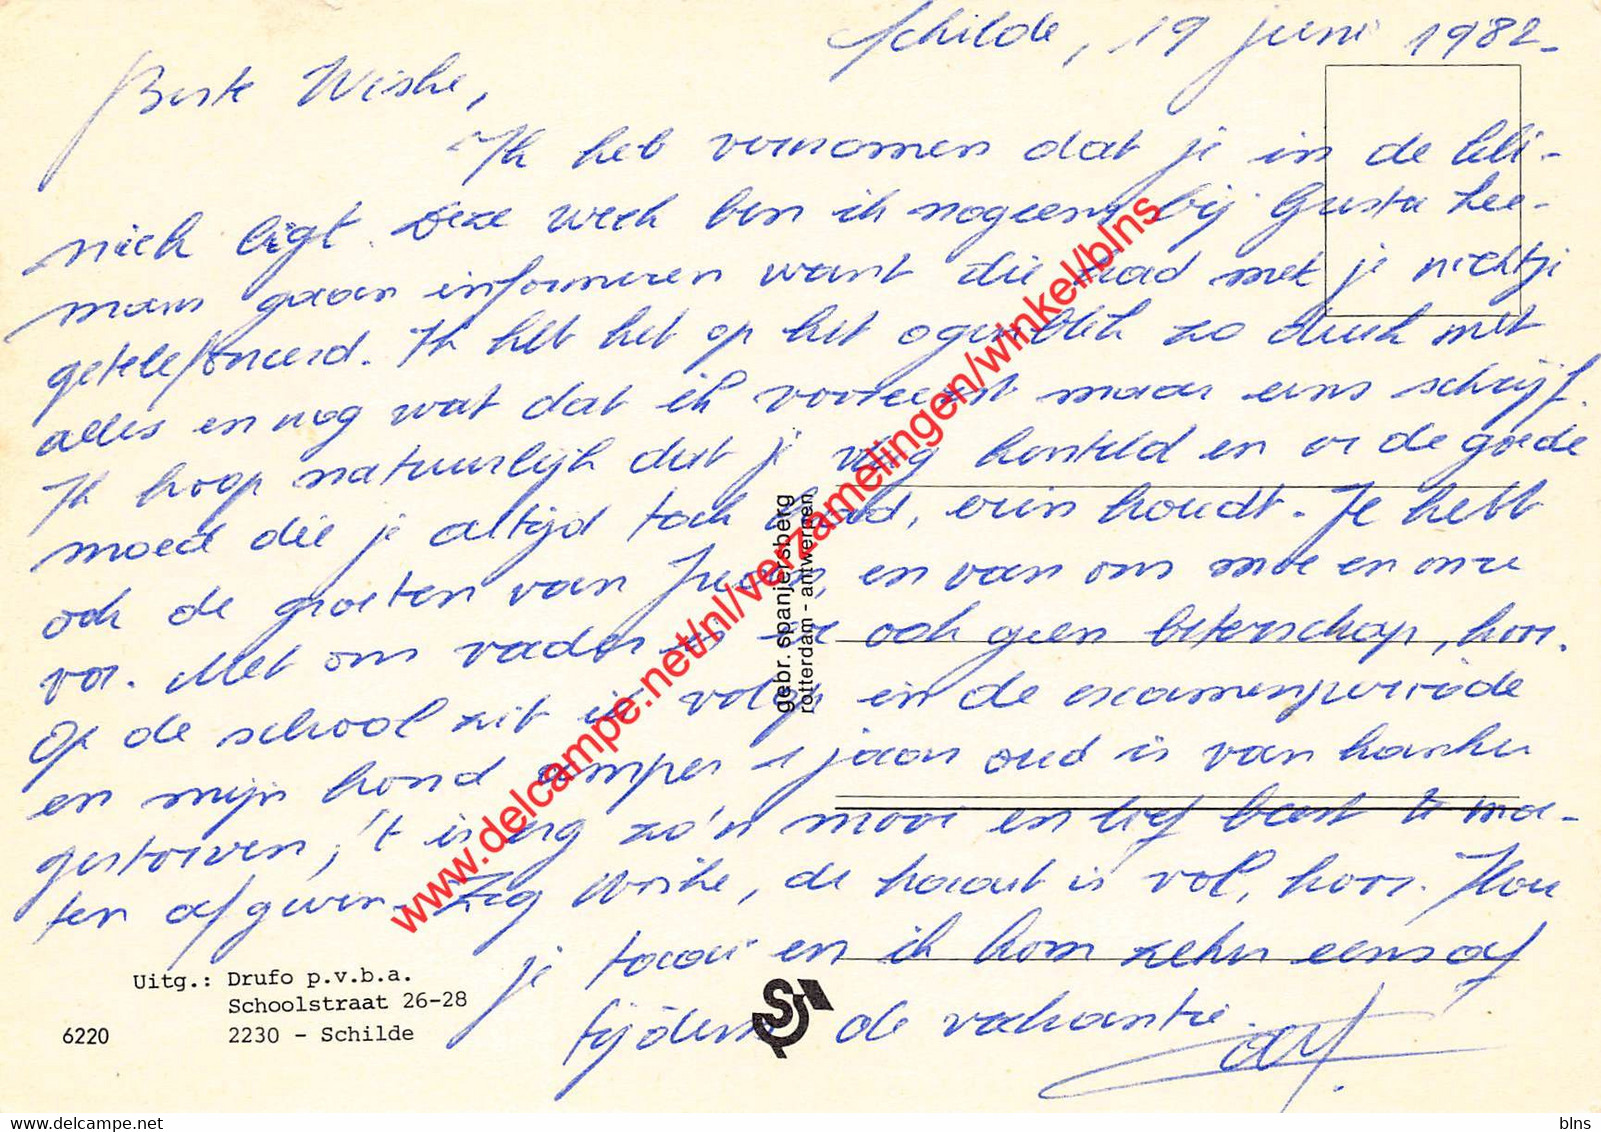 Schilde, 19 juni 1982.
Beste Wiske,
Ik heb vernomen dat je in de kli-
niek ligt. Deze week ben ik nogeens bij Gusta Lee-
mans gaan informeren want die had met je nichtje
getelefoneerd. Ik heb het op het ogenblik zo druk met
alles en nog wat dat ik vooreerst maar eens schrijf.
Ik hoop natuurlijk dat je vlug hersteld en er de goede
moed die je altijd toch had, erin houdt. Je hebt
ook de groeten van en van ons moe en onze
va. Met ons vader is er ook geen beterschap, hoor.
Op de school zit ik volop in de examenperiode
en mijn hond amper jaar oud is van kanker
gestorven, 't is erg zo'n mooi en lief beest te moe-
ten afgeven. Zeg Wiske, de kaart is vol, hoor. Hou
je taai en ik kom zeker eens af
tijdens de vakantie.
gebr. spanjersberg
rotterdam - antwerpen
Uitg.: Drufo p.v.b.a.
Schoolstraat 26-28
2230 - Schilde
6220
www.delcampe.net/nl/verzamelingen/winkel/blns
blns